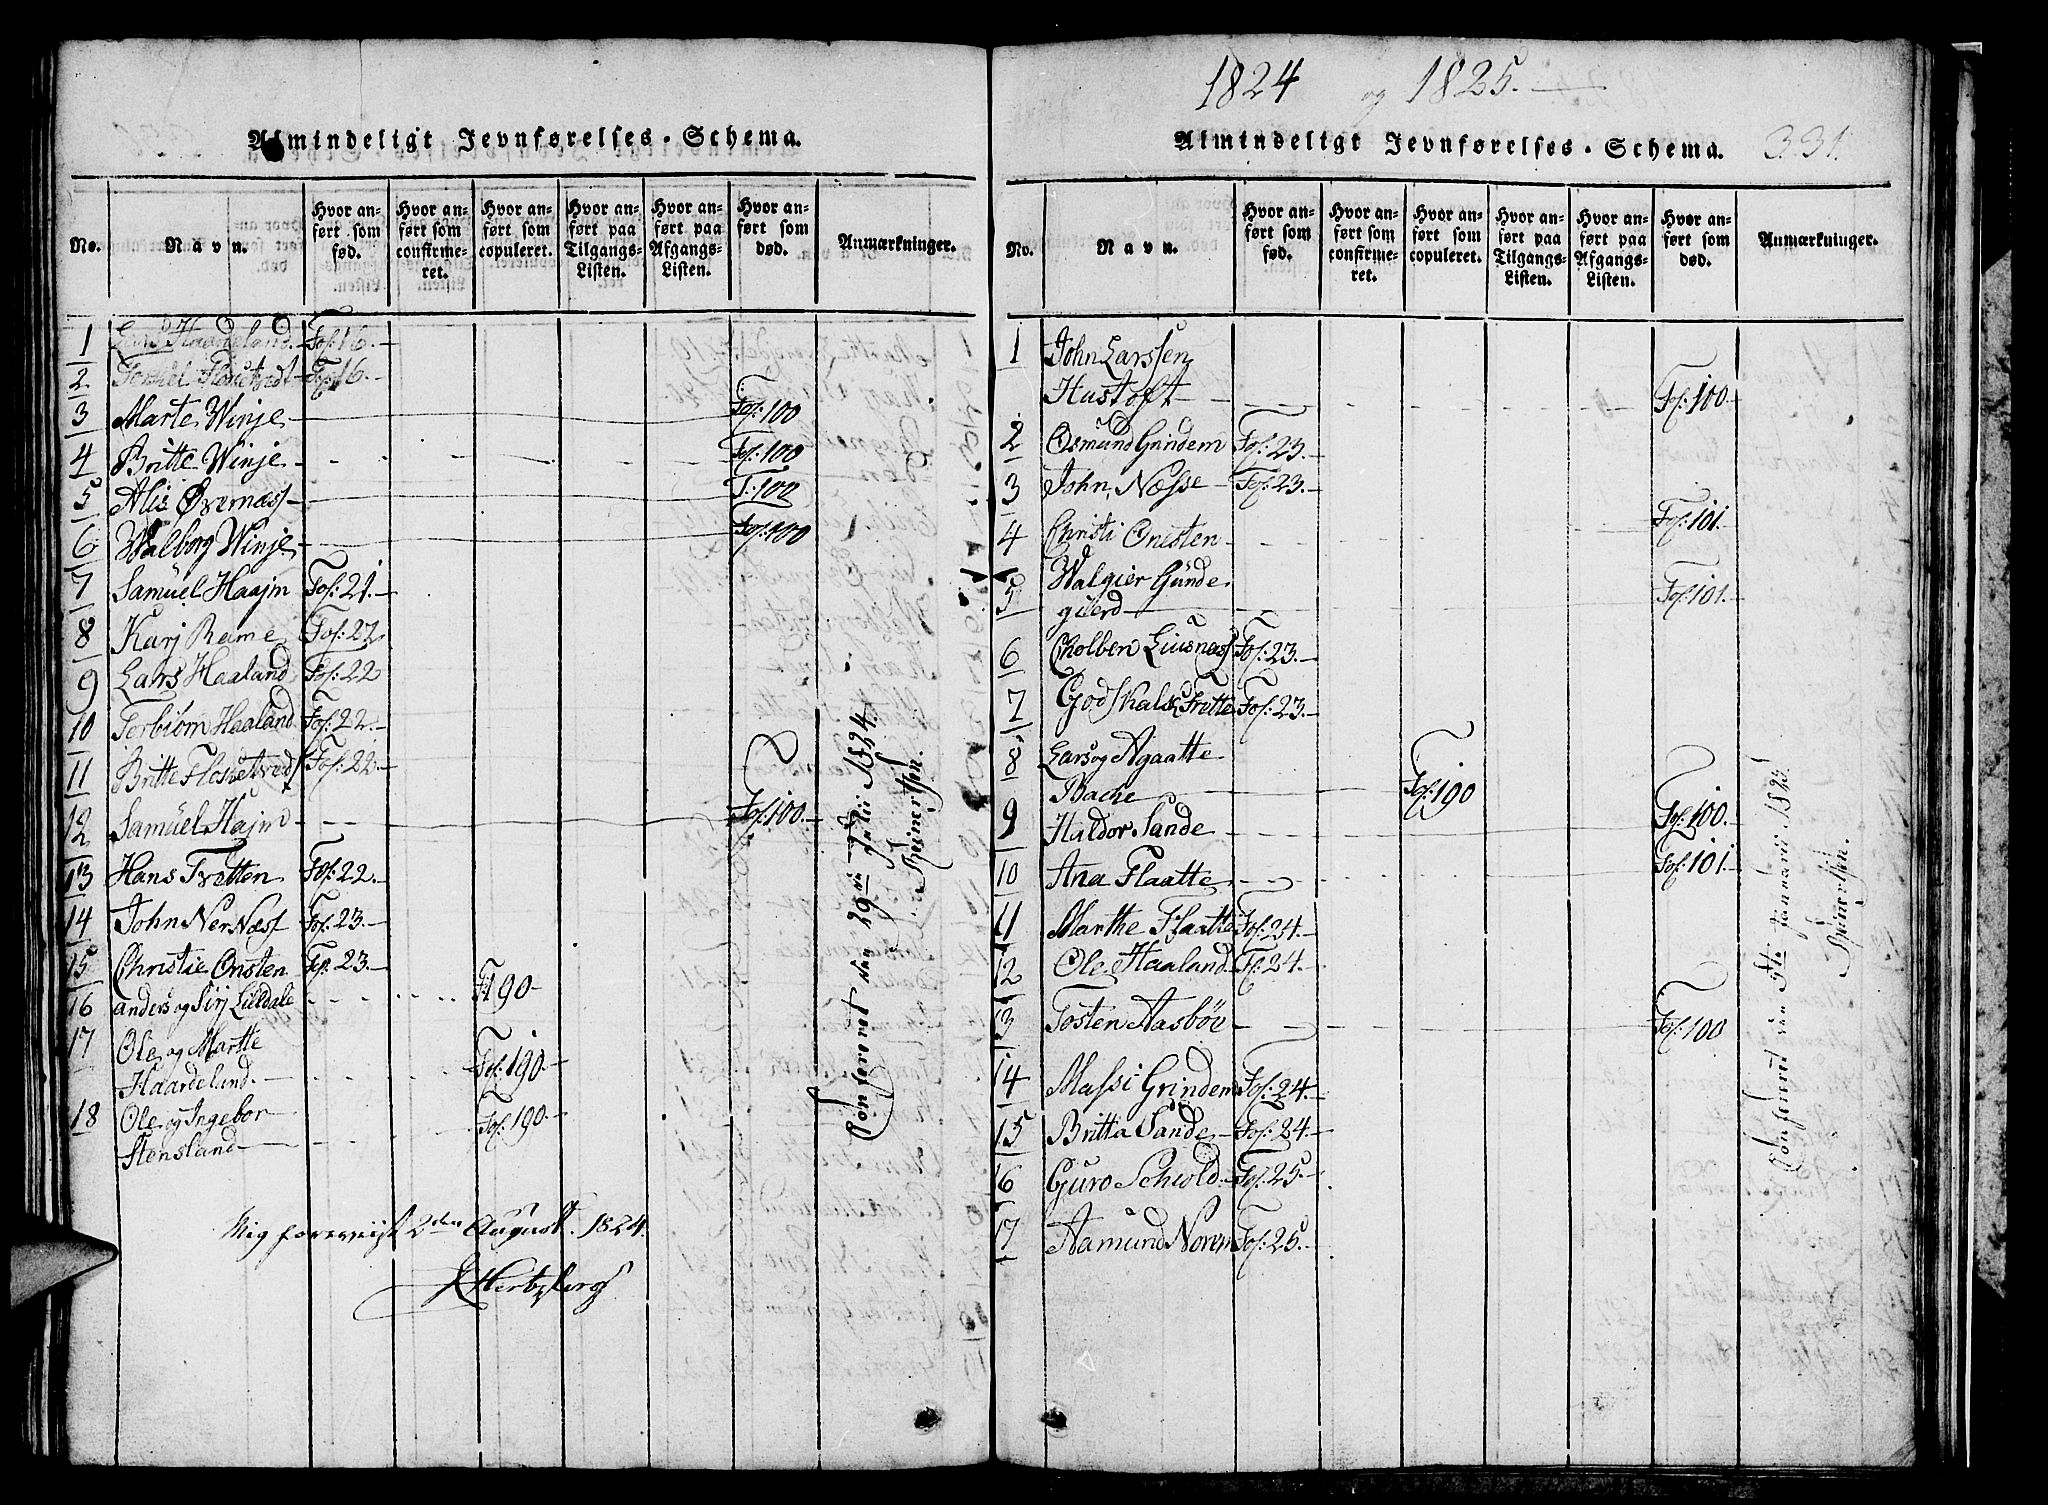 Almindeligt Jevnførelses-Schema.
No.
Navn.
Hvor anført som fød.
Hvor anført som confirmeret.
Hvor anført som copuleret.
Hvor anført paa Tilgangs-Listen.
Hvor anført paa Afgangs-Listen.
Hvor anført som død.
Anmærkninger.
1 Haardeland Fol: 16.
2 Fol: 16.
3 Marte Winje Fol: 100
4 Britte Winje Fol: 100
5 Alis Øvernæss F: 100
6 Walborg Winje Fol: 100
7 Samuel Haajm Fol: 21.
8 Karj Reime Fol: 22
9 Lars Haaland Fol: 22
10 Torbiørn Haaland Fol: 22.
11 Britte Flesketvedt Fol: 22.
12 Samüel Hajm Fol: 100.
13 Hans Tretten Fol: 22.
14 John Ner Næss Fol: 23.
15 Christie Onsten Fol: 23.
16 anders og Sirj Lildale F: 190
17 Ole og Martte
Haardeland. Fol: 190.
18 Ole og Ingebor
Stensland Fol: 190.
Confereret den 29de Julii 1824.
Reinertsen.
Mig foreviist 2den August. 1824.
Hertzberg
1824 og 1825.
Almindeligt Jevnførelses-Schema. 331.
No.
Navn.
Hvor anført som fød.
Hvor anført som confirmeret.
Hvor anført som copuleret.
Hvor anført paa Tilgangs-Listen.
Hvor anført paa Afgangs-Listen.
Hvor anført som død.
Anmærkninger.
1 John Larssen
Hustoft Fol: 100.
2 Osmund Grindem Fol: 23.
3 John Næsse Fol: 23.
4 Christi Onisten Fol: 101.
5 Walgier Günde
gierd Fol: 101.
6 Cholben Liusnæss Fol: 23.
7 Godskalk Trette Fol: 23.
8 Lars og Agaatte
Bache Fol: 190
9 Haldor Sande Fol: 100.
10 Ana Flaatte Fol: 101.
11 Marthe Flaatte Fol: 24.
12 Ole Haaland Fl: 24.
13 Tosten Aasbøe Fol: 100
14 Massi Grindem Fol: 24.
15 Britta Sande Fol: 24.
16 Guro Schiold Fol: 25.
17 Aamund Norem Fol: 25.
Confereret den 5te Januarii 1825
Reinertsen.